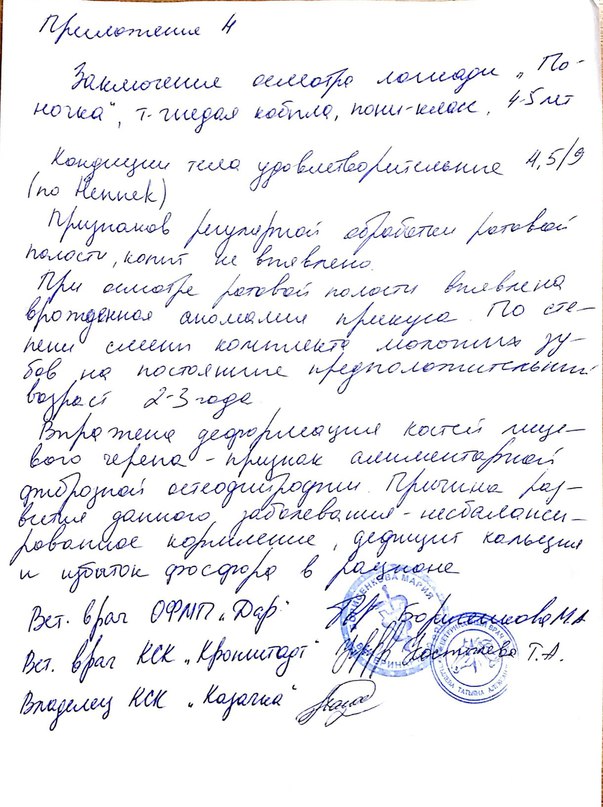 Приложение 4
Заключение осмотра лошади „По-
ночка“, т-гнедая кобыла, пони-класс, 4-5 лет
Кондиции тела удовлетворительные 4,5/9
(по Hennek)
Признаков регулярной обработки ротовой
полости, копыт не выявлено.
При осмотре ротовой полости выявлена
врожденная аномалия прикуса. По сте-
пени смены комплекта молочных зу-
бов на постоянные предположительный
возраст 2-3 года
Выражена деформация костей лице-
вого черепа - признак алиментарной
фиброзной остеодистрофии. Причина раз-
вития данного заболевания - несбаланси-
рованное кормление, дефицит кальция
и избыток фосфора в рационе
Вет. врач ОФМП „Дар“ Борисенкова М.А.
Вет. врач КСК „Кронштадт“ Т.А.
Владелец КСК „Казачка“
МАРИЯ
ТАТЬЯНА